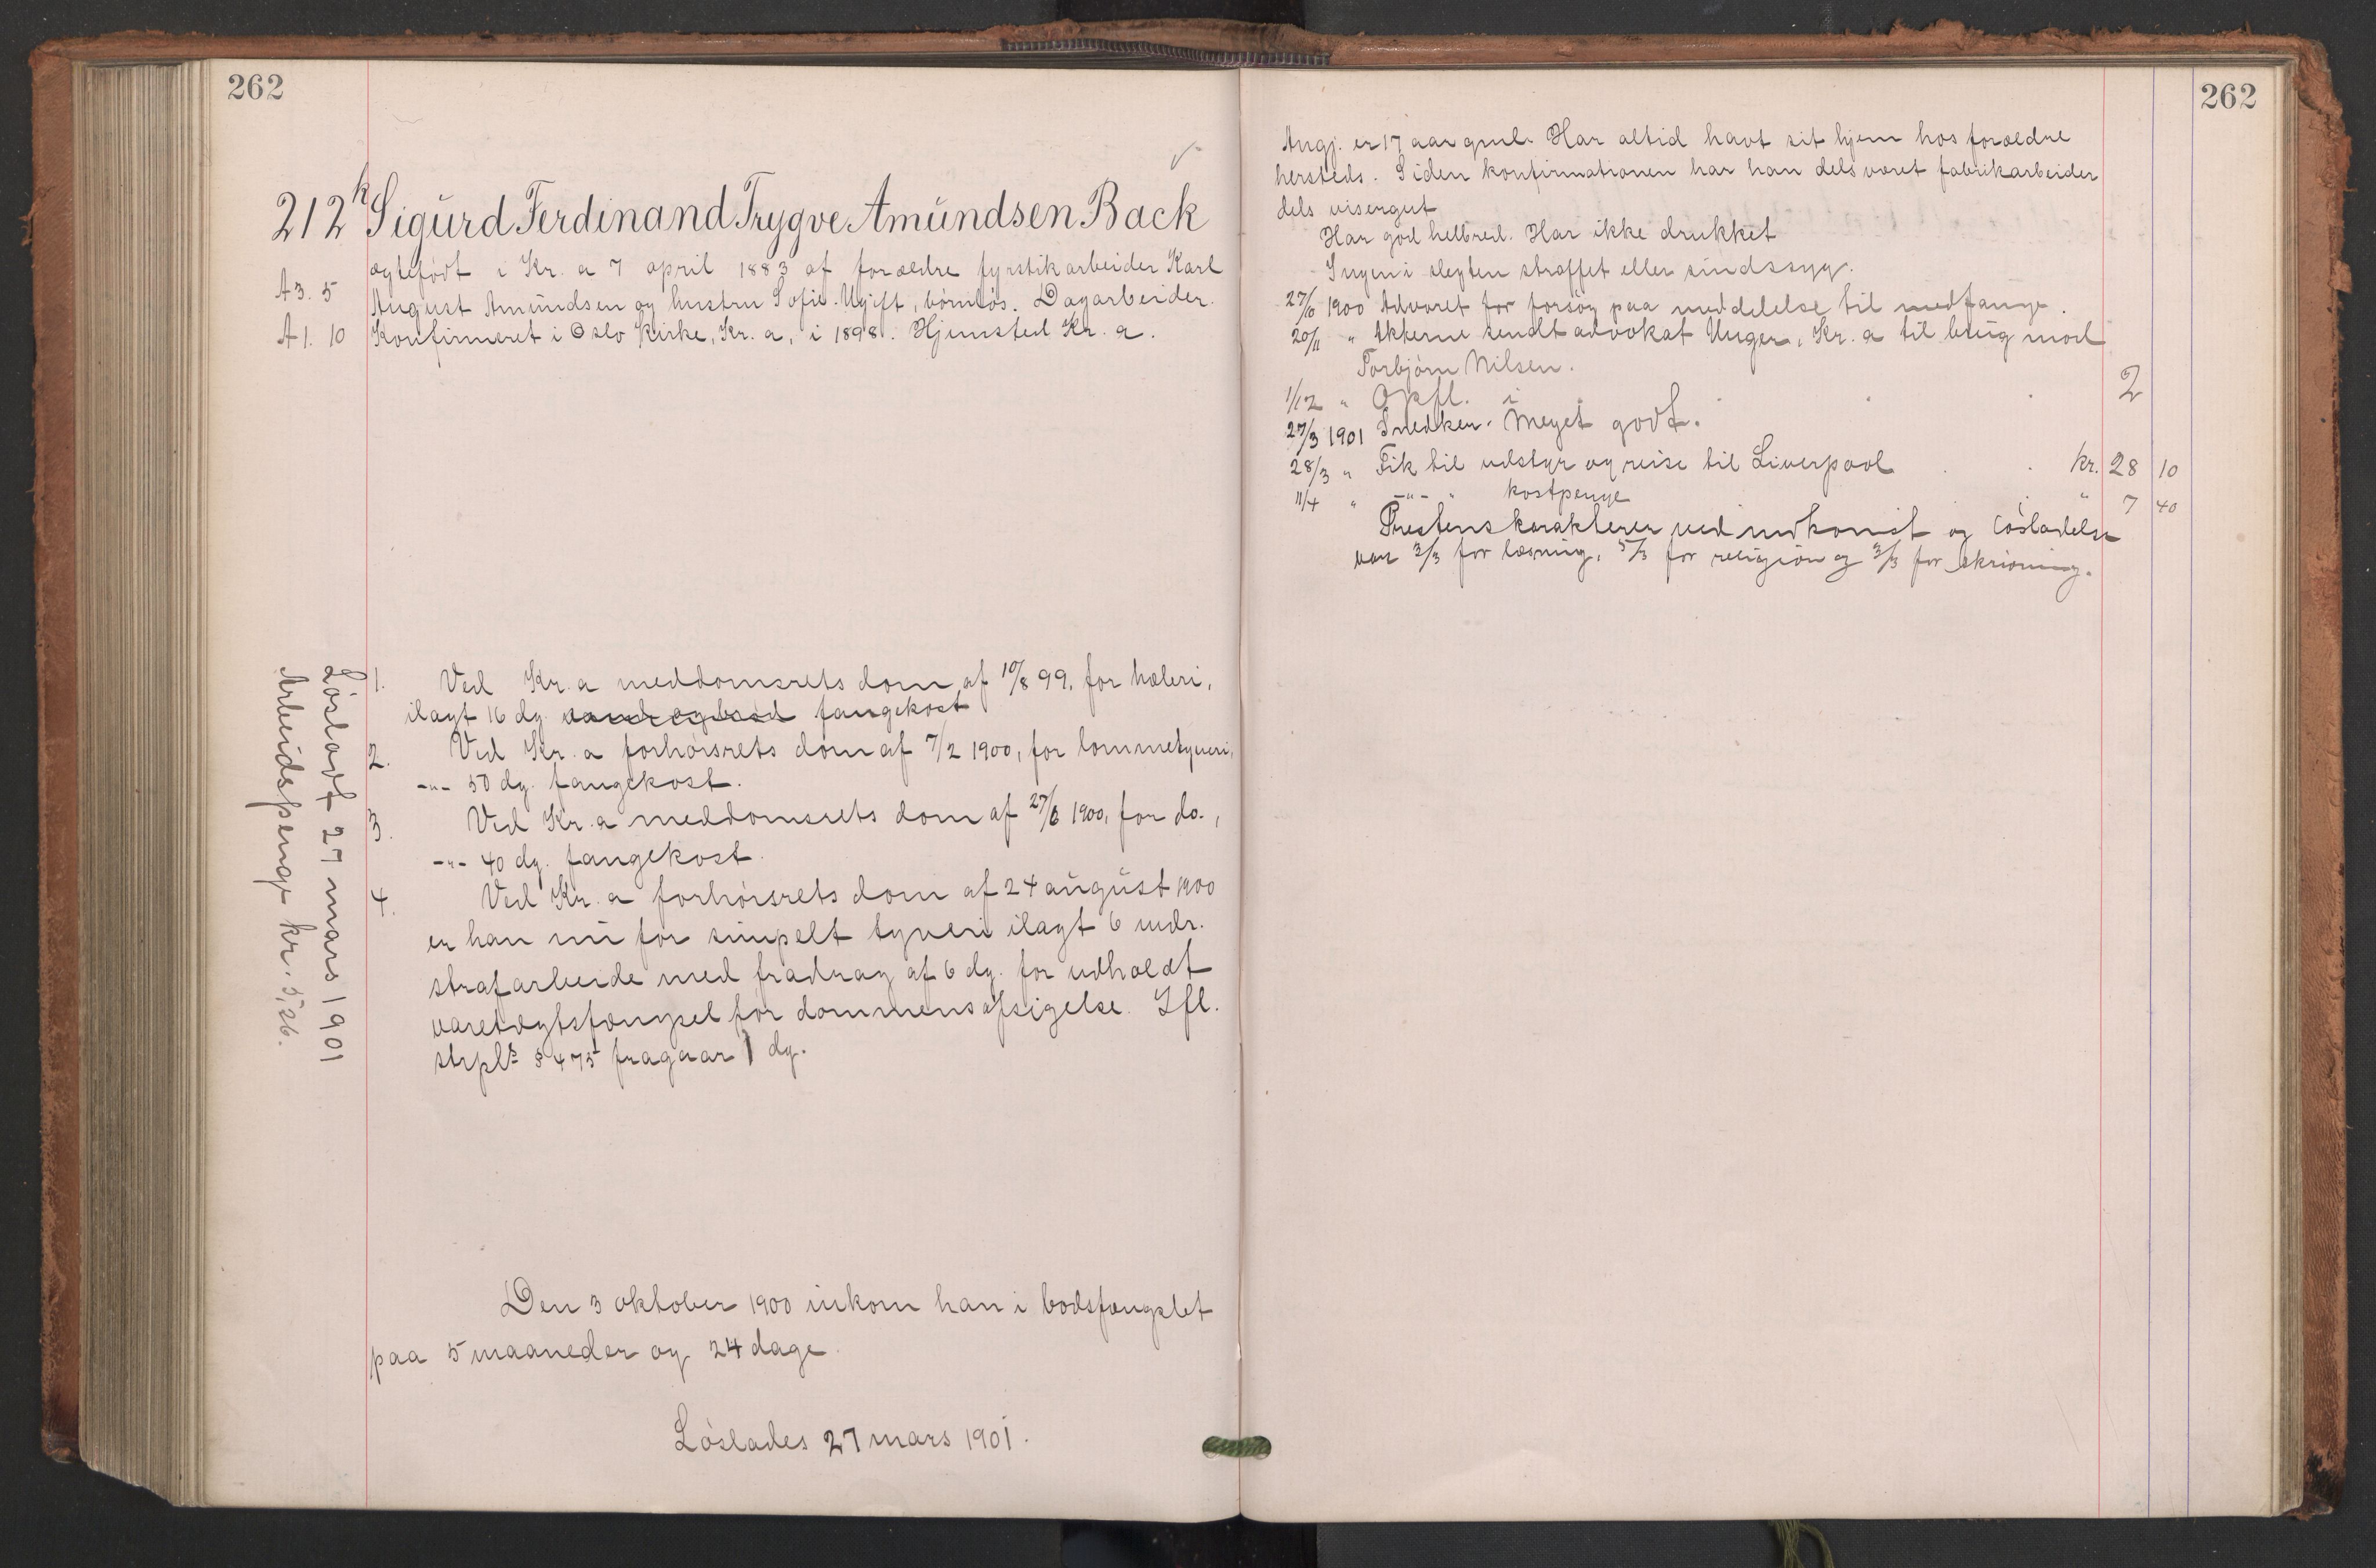 262
212k Sigurd Ferdinand Trygve Amundsen Back
ægtefødt i Kr.a 7 april 1883 af forældre fyrstikarbeider Karl
A3. 5 August Amundsen og hustru Sofie. Ugift, børnløs. Dagarbeider.
A1. 10 Konfirmeret i Oslo Kirke, Kr.a, i 1898. Hjemsted Kr.a.
Løsladt 27 mars 1901
Arbeidspenge kr. 5,26.
1. Ved Kr.a meddomsrets dom af 10/8 99, for hæleri,
ilagt 16 dg. vand og brød fangekost
2. Ved Kr.a forhørsrets dom af 7/2 1900, for lommetyveri,
-"- 50 dg. fangekost.
3. Ved Kr.a meddomsrets dom af 27/6 1900, for do.,
-"- 40 dg. fangekost.
4. Ved Kr.a forhørsrets dom af 24 august 1900
er han nu for simpelt tyveri ilagt 6 mdr.
strafarbeide med fradrag af 6 dg. for udholdt
varetægtsfængsel før dommens afsigelse. Ifl.
strpls § 475 fragaar 1 dg.
Den 3 oktober 1900 inkom han i bodsfængslet
paa 5 maaneder og 24 dage.
Løslades 27 mars 1901.
262
Angj. er 17 aar gml. Har altid havt sit hjem hos forældre
hersteds. Siden konfirmationen har han dels været fabrikarbeider
dels visergut
Har god helbred. Har ikke drukket
Ingen i slegten straffet eller sindssyg.
27/10 1900 Advaret for forsøg paa meddelelse til medfange.
20/11 " Akterne sendt advokat Unger, Kr.a til brug mod
Torbjørn Nilsen.
1/12 " Opfl. i . . . 2
27/3 1901 Snedker. Meget godt.
28/3 " Fik til udstyr og reise til Liverpool . . kr. 28 10
11/4 " -"- " kostpenge . " 7 40
Prestens karakterer ved indkomst og løsladelse
var 3/3 for læsning, 5/3 for religion og 3/3 for skrivning.